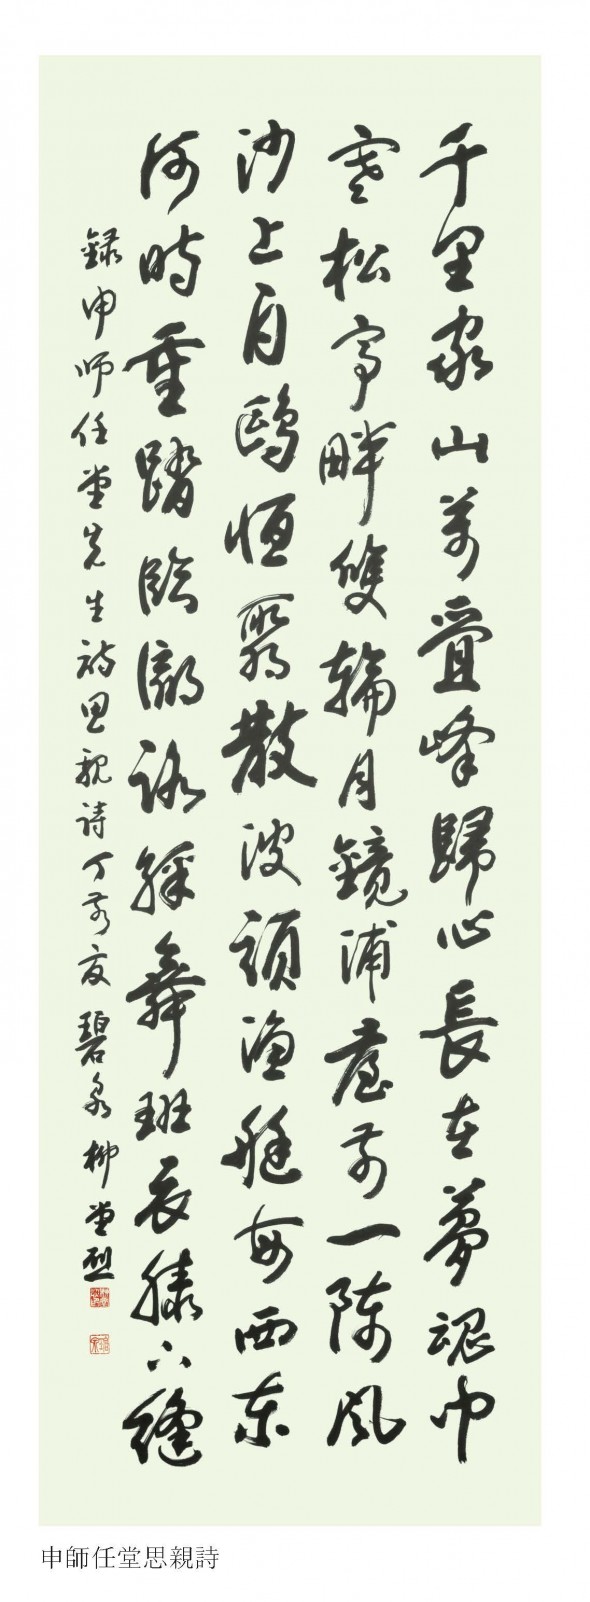 千里家山萬疊峰歸心長在夢魂中
寒松亭畔雙輪月鏡浦臺前一陣風
沙上白鷗恒聚散波頭漁艇每西東
何時重踏臨瀛路綵舞班衣膝下縫
錄申師任堂先生詩思親詩丁夏碧泉柳堂烈
申師任堂思親詩